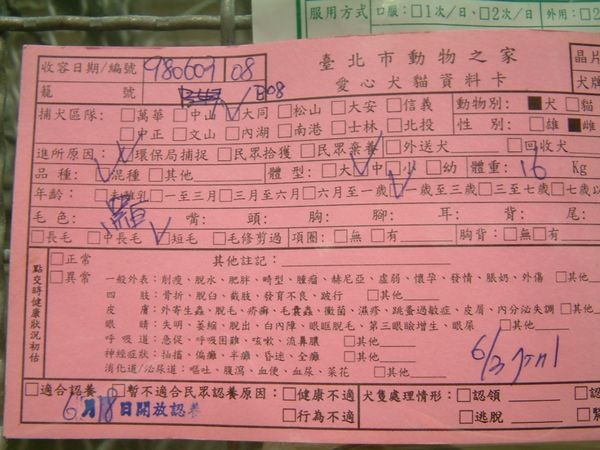 服用方式 口服：□1次/日、□2次/日 外用：□2
臺北市動物之家
愛心犬貓資料卡
收容日期/編號 980609 08
籠號 B08
捕犬區隊：□萬華□中山□大同□松山□大安□信義
□中正□文山□內湖□南港□士林□北投
動物別：■犬□貓
性別：□雄■雌
晶片
犬牌
進所原因：□環保局捕捉□民眾拾獲□民眾棄養□外送犬 □回收犬
品種：□混種□其他 體型：□大□中□小□幼 體重：16 Kg
年齡：□未離乳□一至三月□三月至六月□六月至一歲□一歲至三歲□三至七歲□七以
毛色： 嘴： 頭： 胸： 腳： 耳： 背： 尾：
□長毛□中長毛□短毛□毛修剪過 項圈：□無□有 胸背：□無□有
點交時健康狀況初估
□正常 其他註記：
□異常 一般外表：削瘦、脫水、肥胖、畸型、腫瘤、赫尼亞、虛弱、懷孕、發情、脹奶、外傷 □其他
四肢：骨折、脫臼、截肢、發育不良、跛行 □其他
皮膚：外寄生蟲、脫毛、疥癬、毛囊蟲、黴菌、濕疹、跳蚤過敏症、皮屑、內分泌失調□其他
眼睛：失明、萎縮、脫出、白內障、眼眶脫毛、第三眼瞼增生、眼屎 □其他
呼吸道：急促、呼吸困難、咳嗽、流鼻膿 □其他
神經症狀：抽搐、偏癱、半癱、昏迷、全癱 □其他
消化道/泌尿道：嘔吐、腹瀉、血便、血尿、菜花 □其他
□適合認養 □暫不適合民眾認養原因：□健康不適 犬隻處理情形：□認領 □
□行為不適 □逃脫 □緊
6月18日開放認養